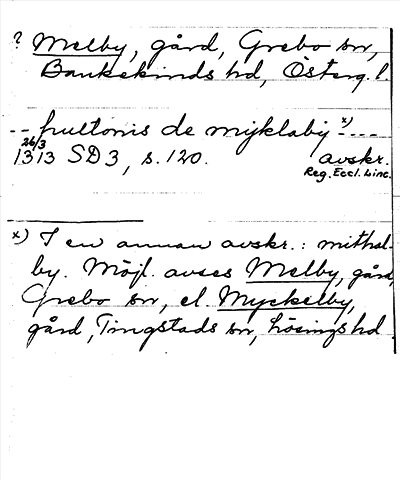 ? Melby, gård, Grebo sn,
Bankekinds hd, Österg. l.
-- frultonis de mijklabij x) ---
26/3
1313 SD 3, s. 120. avskr.
Reg. Eccl. Linc.
x) I en annan avskr.: mithal-
by. Möjl. avses Melby, gård,
Grebo sn, el. Myckelby,
gård, Tingstads sn, Lösings hd